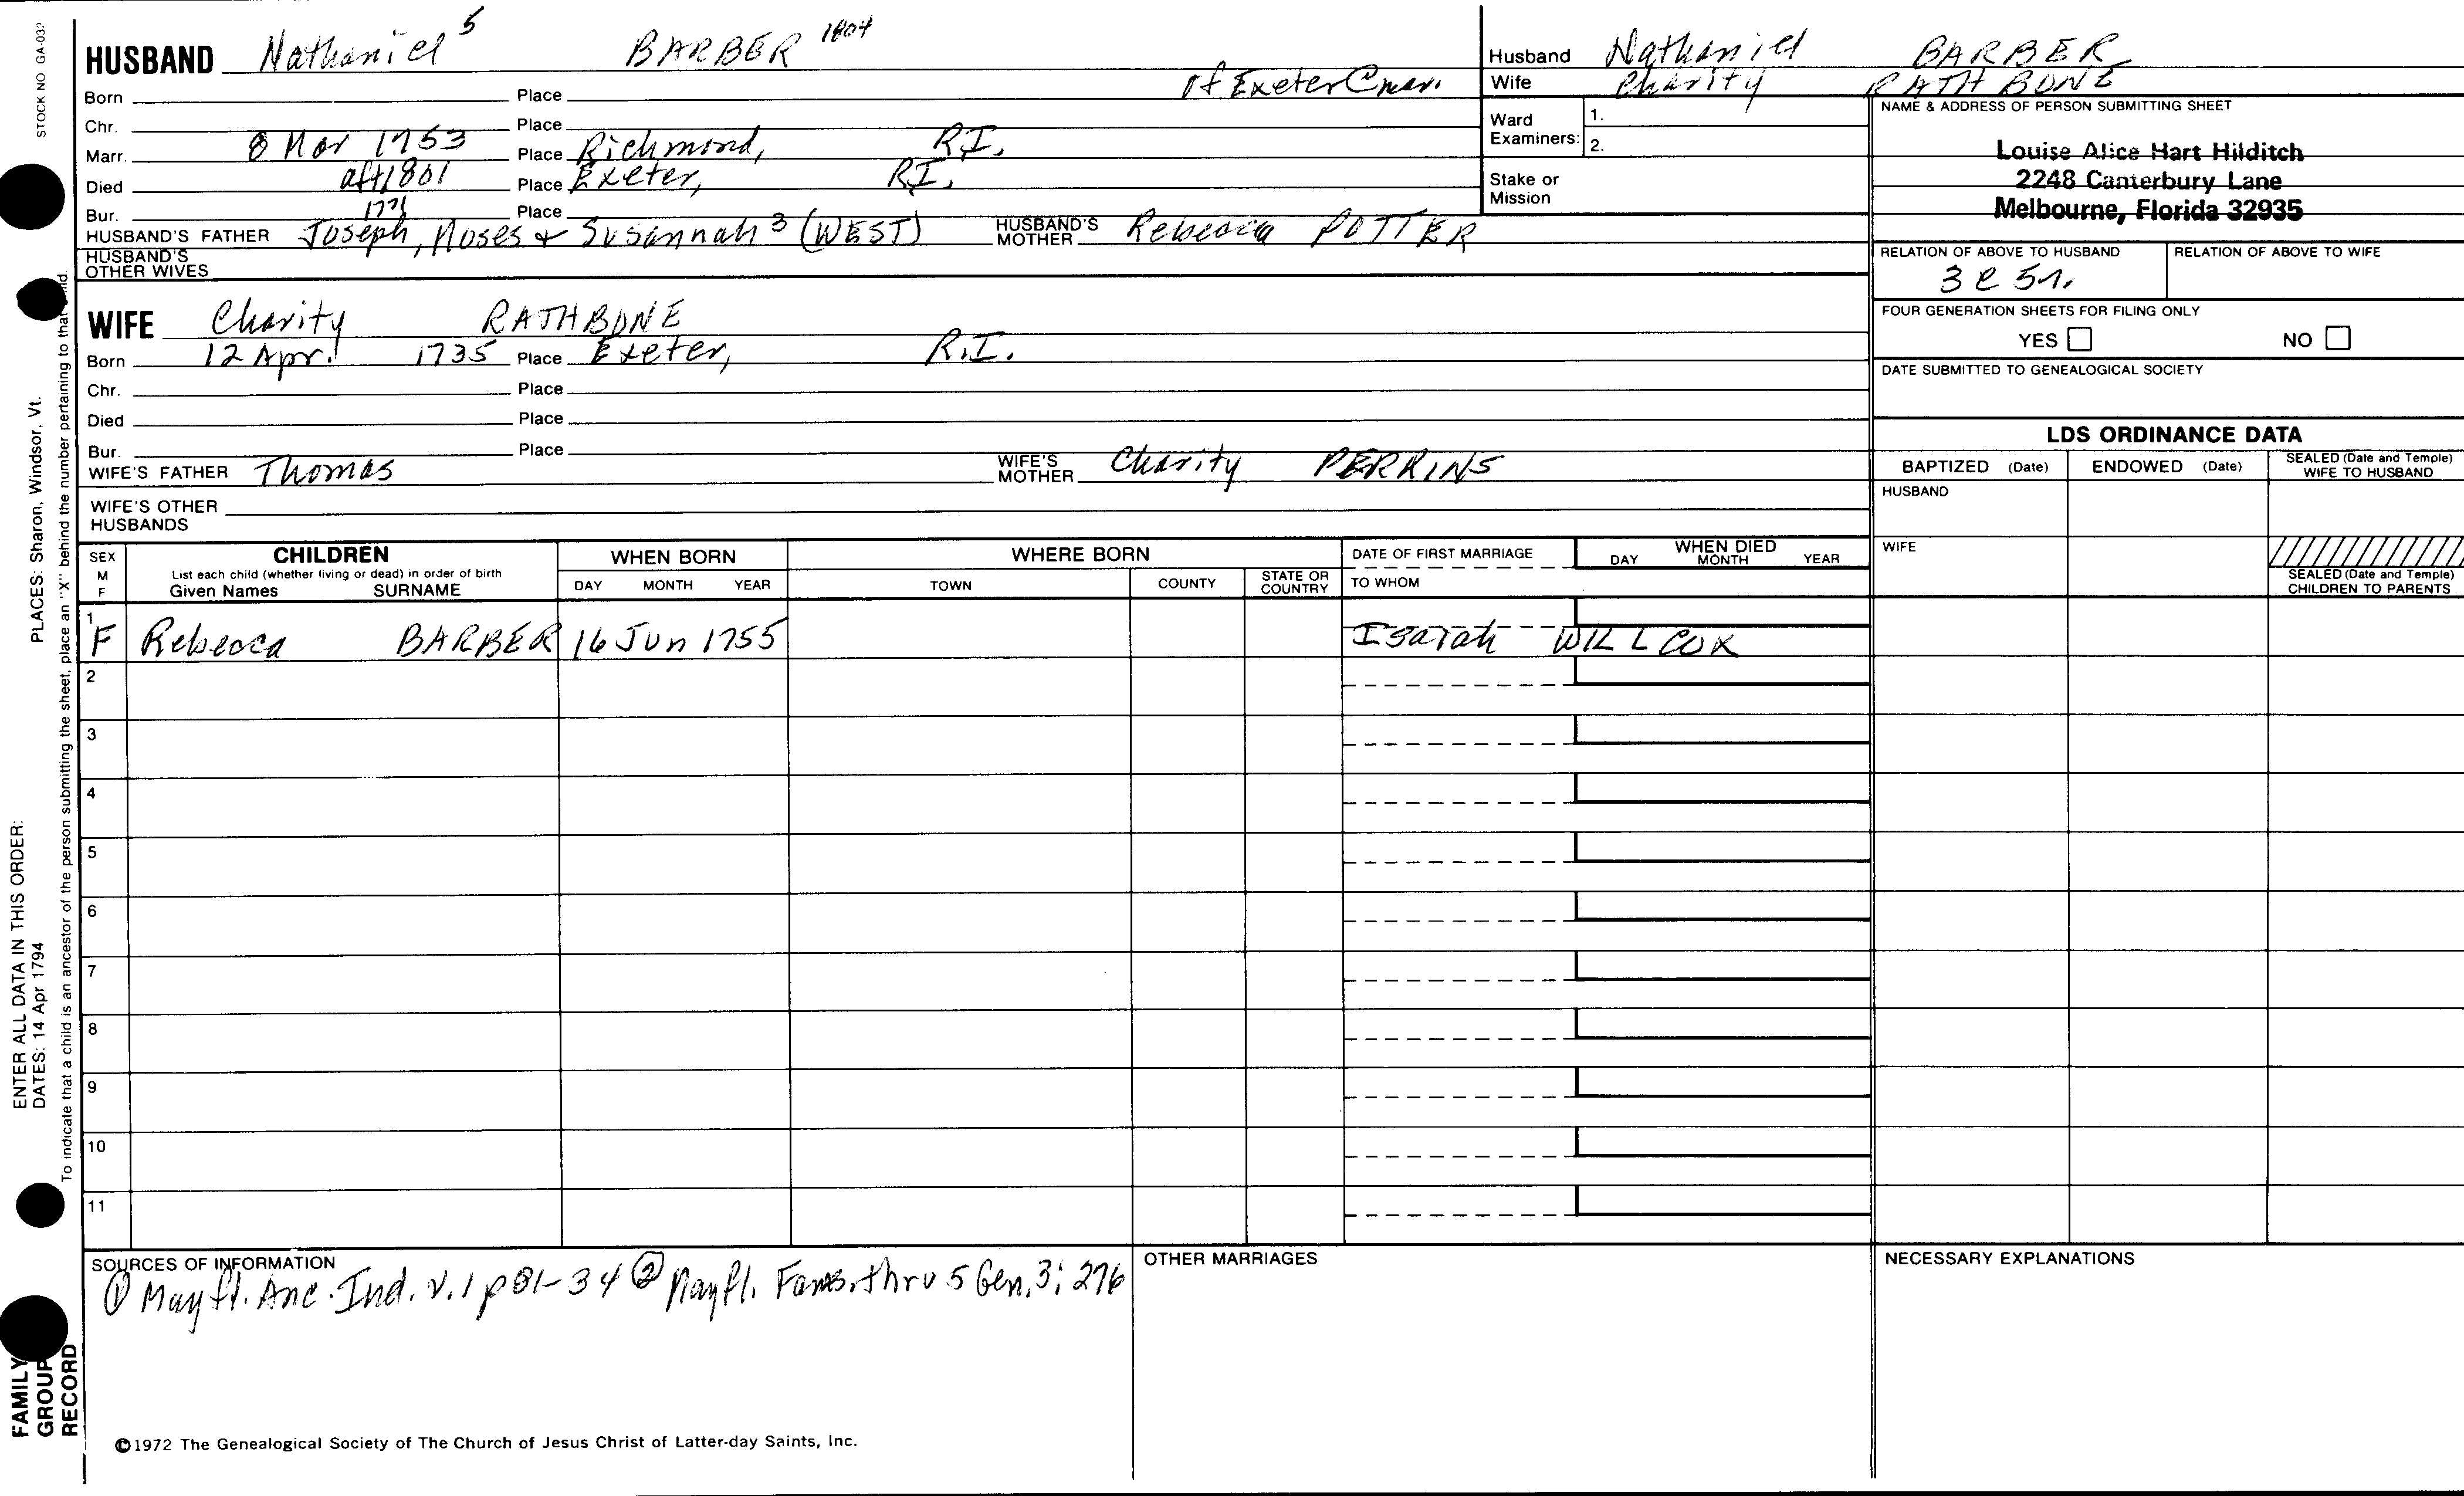 STOCK NO GA-032
HUSBAND Nathaniel 5 BARBER 1804
Born Place of Exeter @ mar.
Chr. Place
Marr. 8 Mar 1753 Place Richmond, RI,
Died aft 1801 Place Exeter, RI,
Bur. Place
1771
HUSBAND'S FATHER Joseph, Moses & Susannah 3 (WEST) HUSBAND'S MOTHER Rebecca POTTER
HUSBAND'S OTHER WIVES
WIFE Charity RATHBONE
Born 12 Apr. 1735 Place Exeter, R.I.
Chr. Place
Died Place
Bur. Place
WIFE'S FATHER Thomas WIFE'S MOTHER Charity PERKINS
WIFE'S OTHER HUSBANDS
Husband Nathaniel BARBER
Wife Charity RATHBONE
Ward Examiners: 1.
2.
Stake or Mission
NAME & ADDRESS OF PERSON SUBMITTING SHEET
Louise Alice Hart Hilditch
2248 Canterbury Lane
Melbourne, Florida 32935
RELATION OF ABOVE TO HUSBAND RELATION OF ABOVE TO WIFE
3 c 5r.
FOUR GENERATION SHEETS FOR FILING ONLY
YES NO
DATE SUBMITTED TO GENEALOGICAL SOCIETY
LDS ORDINANCE DATA
BAPTIZED (Date) ENDOWED (Date) SEALED (Date and Temple) WIFE TO HUSBAND
HUSBAND
WIFE
SEALED (Date and Temple) CHILDREN TO PARENTS
SEX M F
CHILDREN
List each child (whether living or dead) in order of birth
Given Names SURNAME
WHEN BORN
DAY MONTH YEAR
WHERE BORN
TOWN COUNTY STATE OR COUNTRY
DATE OF FIRST MARRIAGE
TO WHOM
WHEN DIED
DAY MONTH YEAR
1
F Rebecca BARBER 16 Jun 1755 Isaiah WILLCOX
2
3
4
5
6
7
8
9
10
11
SOURCES OF INFORMATION
① Mayfl. Anc. Ind. v.1 p 31-34 ② Mayfl. Fams. thru 5 Gen, 3; 276
OTHER MARRIAGES
NECESSARY EXPLANATIONS
©1972 The Genealogical Society of The Church of Jesus Christ of Latter-day Saints, Inc.
ENTER ALL DATA IN THIS ORDER:
DATES: 14 Apr 1794 PLACES: Sharon, Windsor, Vt.
To indicate that a child is an ancestor of the person submitting the sheet, place an "X" behind the number pertaining to that
FAMILY
GROUP
RECORD